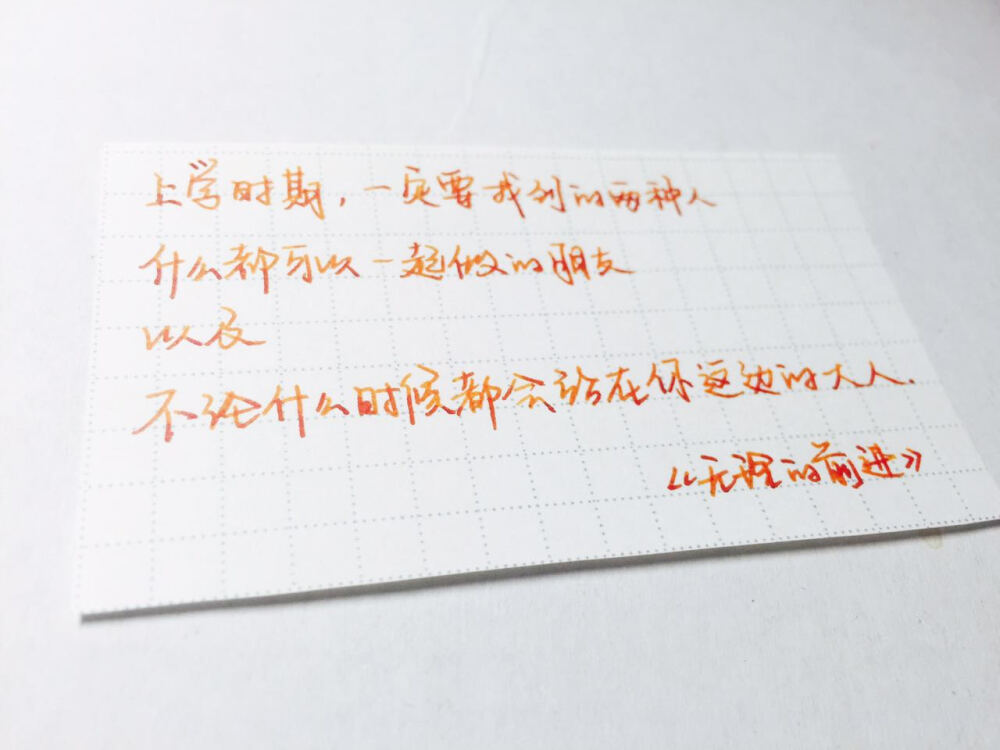 上学时期，一定要找到的两种人
什么都可以一起做的朋友
以及
不论什么时候都会站在你这边的大人.
《无谓的前进》